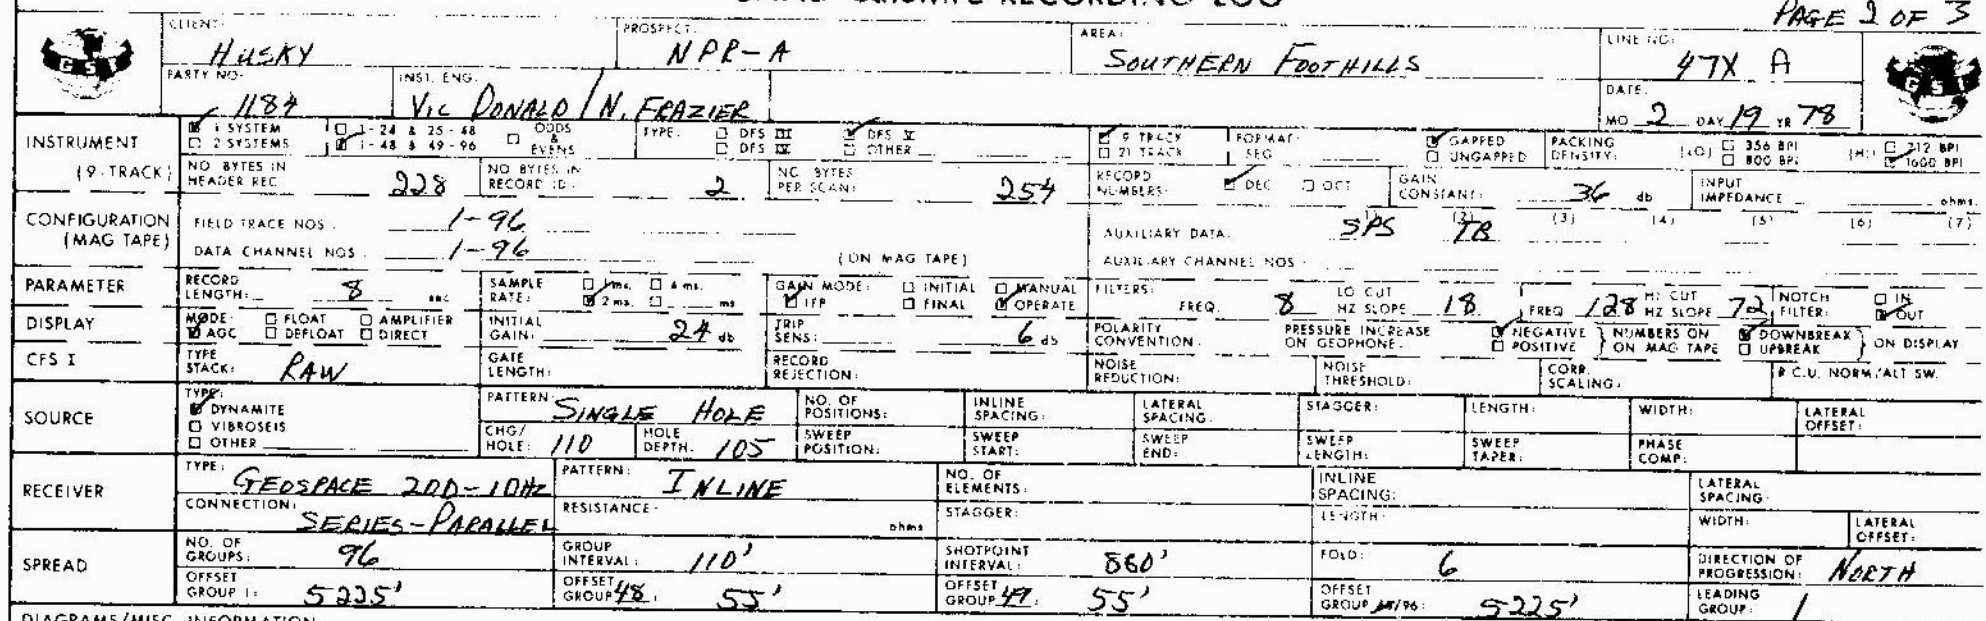 PAGE 2 OF 3
CLIENT: HUSKY PROSPECT: NPR-A AREA: SOUTHERN FOOTHILLS LINE NO: 47X A
GSI
PARTY NO: 1184 INST. ENG. VIC DONALD / N. FRAZIER DATE: MO 2 DAY 19 YR 78
INSTRUMENT (9-TRACK)
1 SYSTEM 1-24 & 25-48 ODDS & EVENS TYPE: DFS III DFS V 9 TRACK FORMAT: GAPPED PACKING DENSITY: (LO) 356 BPI (HI) 712 BPI
2 SYSTEMS 1-48 & 49-96 DFS IV OTHER 21 TRACK SEG UNGAPPED 800 BPI 1600 BPI
NO. BYTES IN HEADER REC. 228 NO BYTES IN RECORD ID. 2 NO. BYTES PER SCAN: 254 RECORD NUMBERS: DEC OCT GAIN CONSTANT: 36 db INPUT IMPEDANCE ohms
CONFIGURATION (MAG TAPE)
FIELD TRACE NOS. 1-96 AUXILIARY DATA: (1) SPS (2) TB (3) (4) (5) (6) (7)
DATA CHANNEL NOS. 1-96 (ON MAG TAPE) AUXILIARY CHANNEL NOS.
PARAMETER RECORD LENGTH: 8 sec SAMPLE RATE: 1 ms. 4 ms. 2 ms. ms GAIN MODE: INITIAL MANUAL IFP FINAL OPERATE FILTERS: FREQ. 8 LO CUT HZ SLOPE 18 FREQ 128 HI CUT HZ SLOPE 72 NOTCH FILTER: IN OUT
DISPLAY MODE: FLOAT AMPLIFIER AGC DEFLOAT DIRECT INITIAL GAIN: 24 db TRIP SENS: 6 db POLARITY CONVENTION: PRESSURE INCREASE ON GEOPHONE: NEGATIVE POSITIVE NUMBERS ON ON MAG TAPE DOWNBREAK UPBREAK ON DISPLAY
CFS I TYPE STACK: RAW GATE LENGTH: RECORD REJECTION: NOISE REDUCTION: NOISE THRESHOLD: CORR. SCALING: R.C.U. NORM/ALT SW.
SOURCE
TYPE: DYNAMITE VIBROSEIS OTHER PATTERN: SINGLE HOLE NO. OF POSITIONS: INLINE SPACING: LATERAL SPACING: STAGGER: LENGTH: WIDTH: LATERAL OFFSET:
CHG/HOLE: 110 HOLE DEPTH. 105 SWEEP POSITION: SWEEP START: SWEEP END: SWEEP LENGTH: SWEEP TAPER: PHASE COMP:
RECEIVER
TYPE: GEOSPACE 20D-10HZ PATTERN: INLINE NO. OF ELEMENTS: INLINE SPACING: LATERAL SPACING:
CONNECTION: SERIES-PARALLEL RESISTANCE: ohms STAGGER: LENGTH: WIDTH: LATERAL OFFSET:
SPREAD
NO. OF GROUPS: 96 GROUP INTERVAL: 110' SHOTPOINT INTERVAL: 880' FOLD: 6 DIRECTION OF PROGRESSION: NORTH
OFFSET GROUP 1: 5225' OFFSET GROUP 48: 55' OFFSET GROUP 49: 55' OFFSET GROUP 48/96: 5225' LEADING GROUP: 1
DIAGRAMS/MISC. INFORMATION